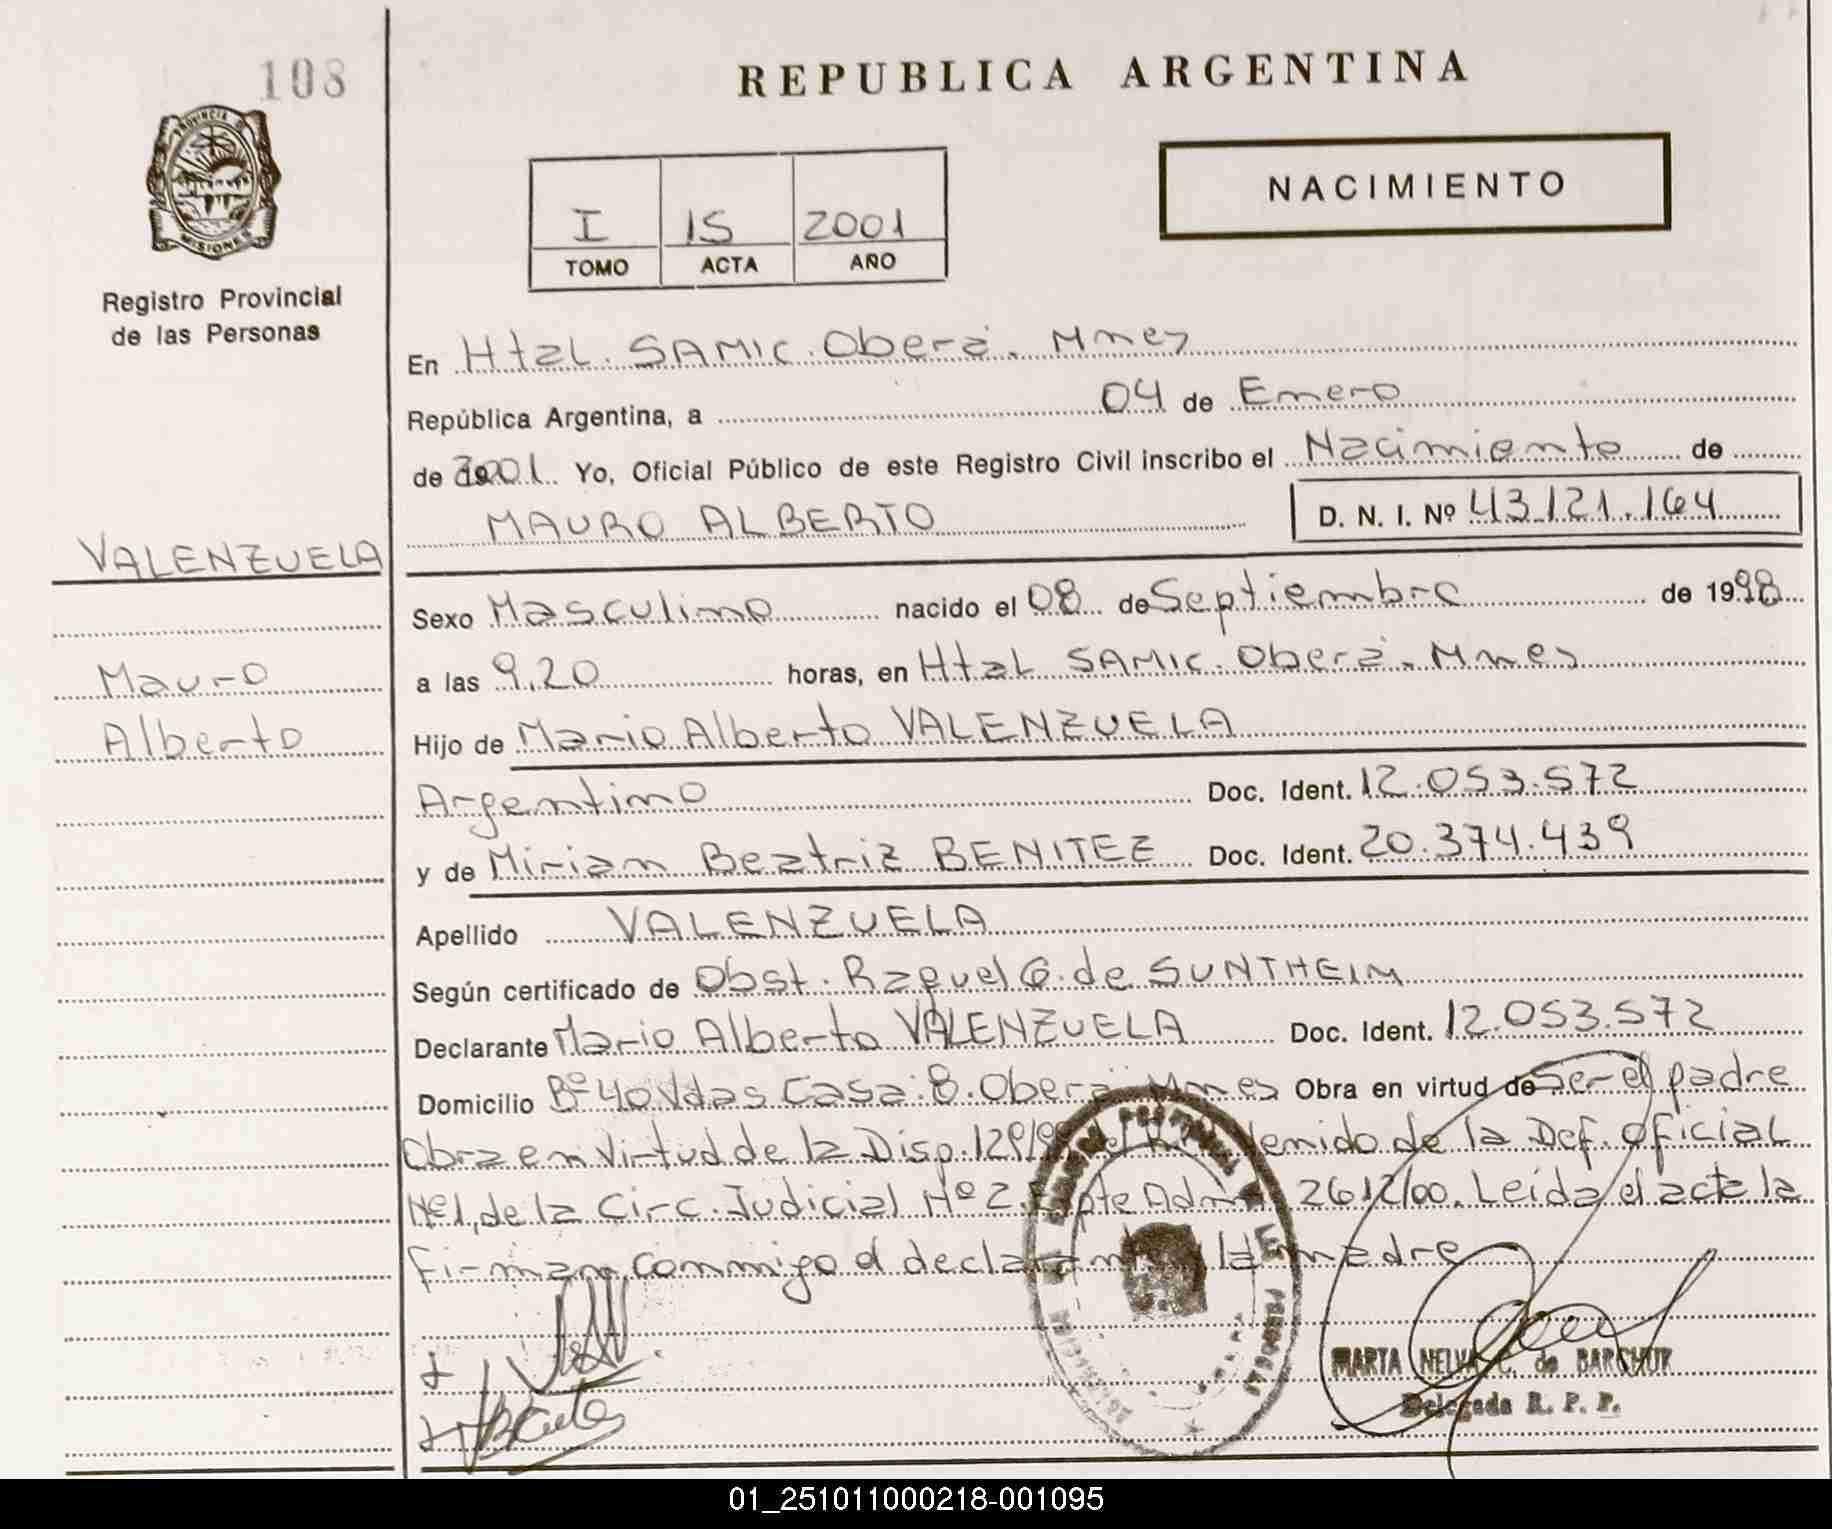 108
REPUBLICA ARGENTINA
PROVINCIA DE
MISIONES
Registro Provincial
de las Personas
NACIMIENTO
I 15 2001
TOMO ACTA AÑO
En Htal. SAMIC. Oberá. Mnes
República Argentina, a 04 de Enero
de 2001. Yo, Oficial Público de este Registro Civil inscribo el Nacimiento de
MAURO ALBERTO D. N. I. Nº 43.121.164
VALENZUELA
Mauro
Alberto
Sexo Masculino nacido el 08 de Septiembre de 1998
a las 9,20 horas, en Htal SAMIC. Oberá. Mnes
Hijo de Mario Alberto VALENZUELA
Argentino Doc. Ident. 12.053.572
y de Miriam Beatriz BENITEZ Doc. Ident. 20.374.439
Apellido VALENZUELA
Según certificado de Obst. Raquel G. de SUNTHEIM
Declarante Mario Alberto VALENZUELA Doc. Ident. 12.053.572
Domicilio Bº 40 Vdas Casa: 8. Oberá Mnes Obra en virtud de Ser el padre
Obra en Virtud de la Disp. de la Def. Oficial
Nº1, de la Circ. Judicial Nº 2. Expte Adm. 2612/00. Leída el acta la
firman conmigo el declarante la madre
MARTA NELVA C. de BARCHUK
Delegada R. P. P.
01_251011000218-001095